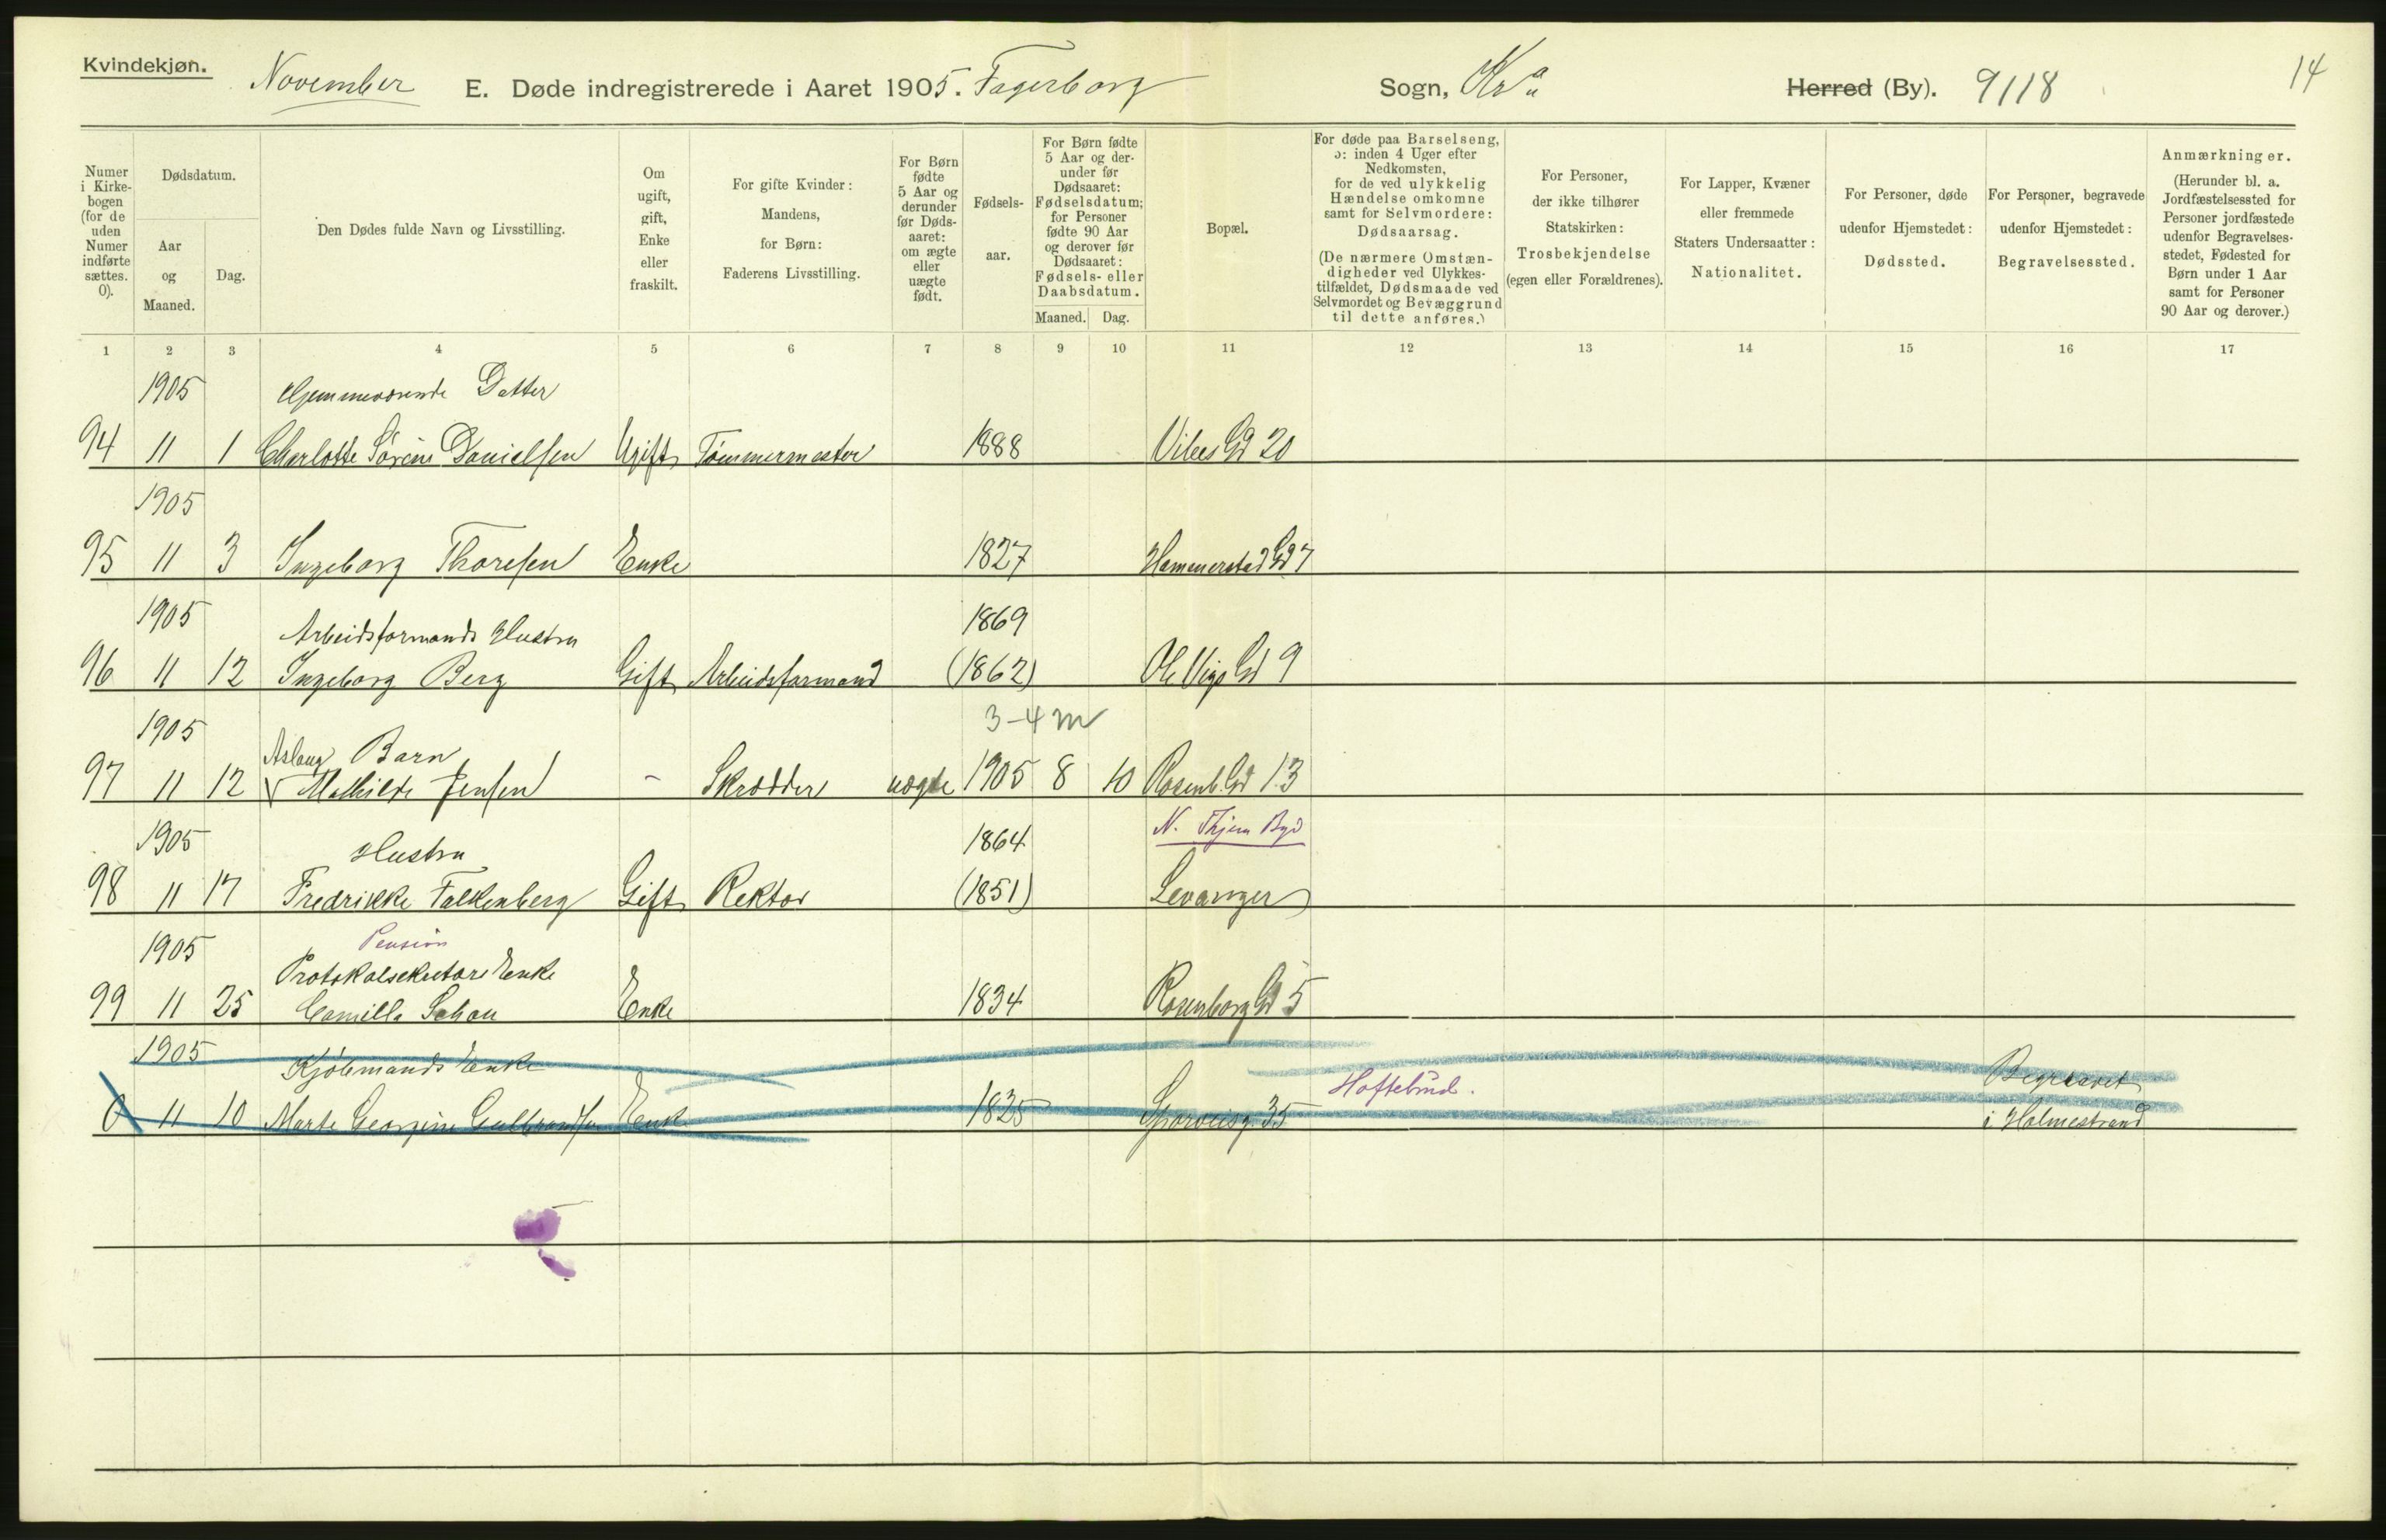 Kvindekjøn.
November E. Døde indregistrerede i Aaret 1905. Fagerborg Sogn, Kra Herred (By). 9118 14
Numer i Kirke- bogen (for de uden Numer indførte sættes. 0).
Dødsdatum.
Aar og Maaned.
Dag.
Den Dødes fulde Navn og Livsstilling.
Om ugift, gift, Enke eller fraskilt.
For gifte Kvinder: Mandens, for Børn: Faderens Livsstilling.
For Børn fødte 5 Aar og derunder før Døds- aaret: om ægte eller uægte født.
Fødsels- aar.
For Børn fødte 5 Aar og der- under før Dødsaaret: Fødselsdatum; for Personer fødte 90 Aar og derover før Dødsaaret: Fødsels- eller Daabsdatum.
Maaned. Dag.
Bopæl.
For døde paa Barselseng, ɔ: inden 4 Uger efter Nedkomsten, for de ved ulykkelig Hændelse omkomne samt for Selvmordere: Dødsaarsag.
(De nærmere Omstæn- digheder ved Ulykkes- tilfældet, Dødsmaade ved Selvmordet og Bevæggrund til dette anføres.)
For Personer, der ikke tilhører Statskirken: Trosbekjendelse (egen eller Forældrenes).
For Lapper, Kvæner eller fremmede Staters Undersaatter: Nationalitet.
For Personer, døde udenfor Hjemstedet: Dødssted.
For Personer, begravede udenfor Hjemstedet: Begravelsessted.
Anmærkninger.
(Herunder bl. a. Jordfæstelsessted for Personer jordfæstede udenfor Begravelses- stedet, Fødested for Børn under 1 Aar samt for Personer 90 Aar og derover.)
1 2 3 4 5 6 7 8 9 10 11 12 13 14 15 16 17
1905 Hjemmeværende Datter
94 11 1 Charlotte Sørine Danielsen Ugift Tømmermester 1888 Vibes Gd 20
1905
95 11 3 Ingeborg Thoresen Enke 1827 Hammerstad Gd 7
1905 Arbeidsformands Hustru 1869
96 11 12 Ingeborg Berg Gift Arbeidsformand (1862) Ole Vigs Gd 9
1905 Aslaug Barn 3-4 m
97 11 12 Mathilde Jensen - Skrædder uægte 1905 8 10 Rosenb. Gd 13
1905 Hustru 1864 N. Thjem Byd
98 11 17 Fredrikke Falkenberg Gift Rektor (1851) Levanger
1905 Pension
Protokolsekretærs Enke
99 11 25 Camilla Schou Enke 1834 Rosenborg Gd 5
1905 Kjøbmands Enke Hoftebrud. Begravet
0 11 10 Marte Georgine Gulbrandsen Enke 1825 Sporveisg. 35 i Holmestrand